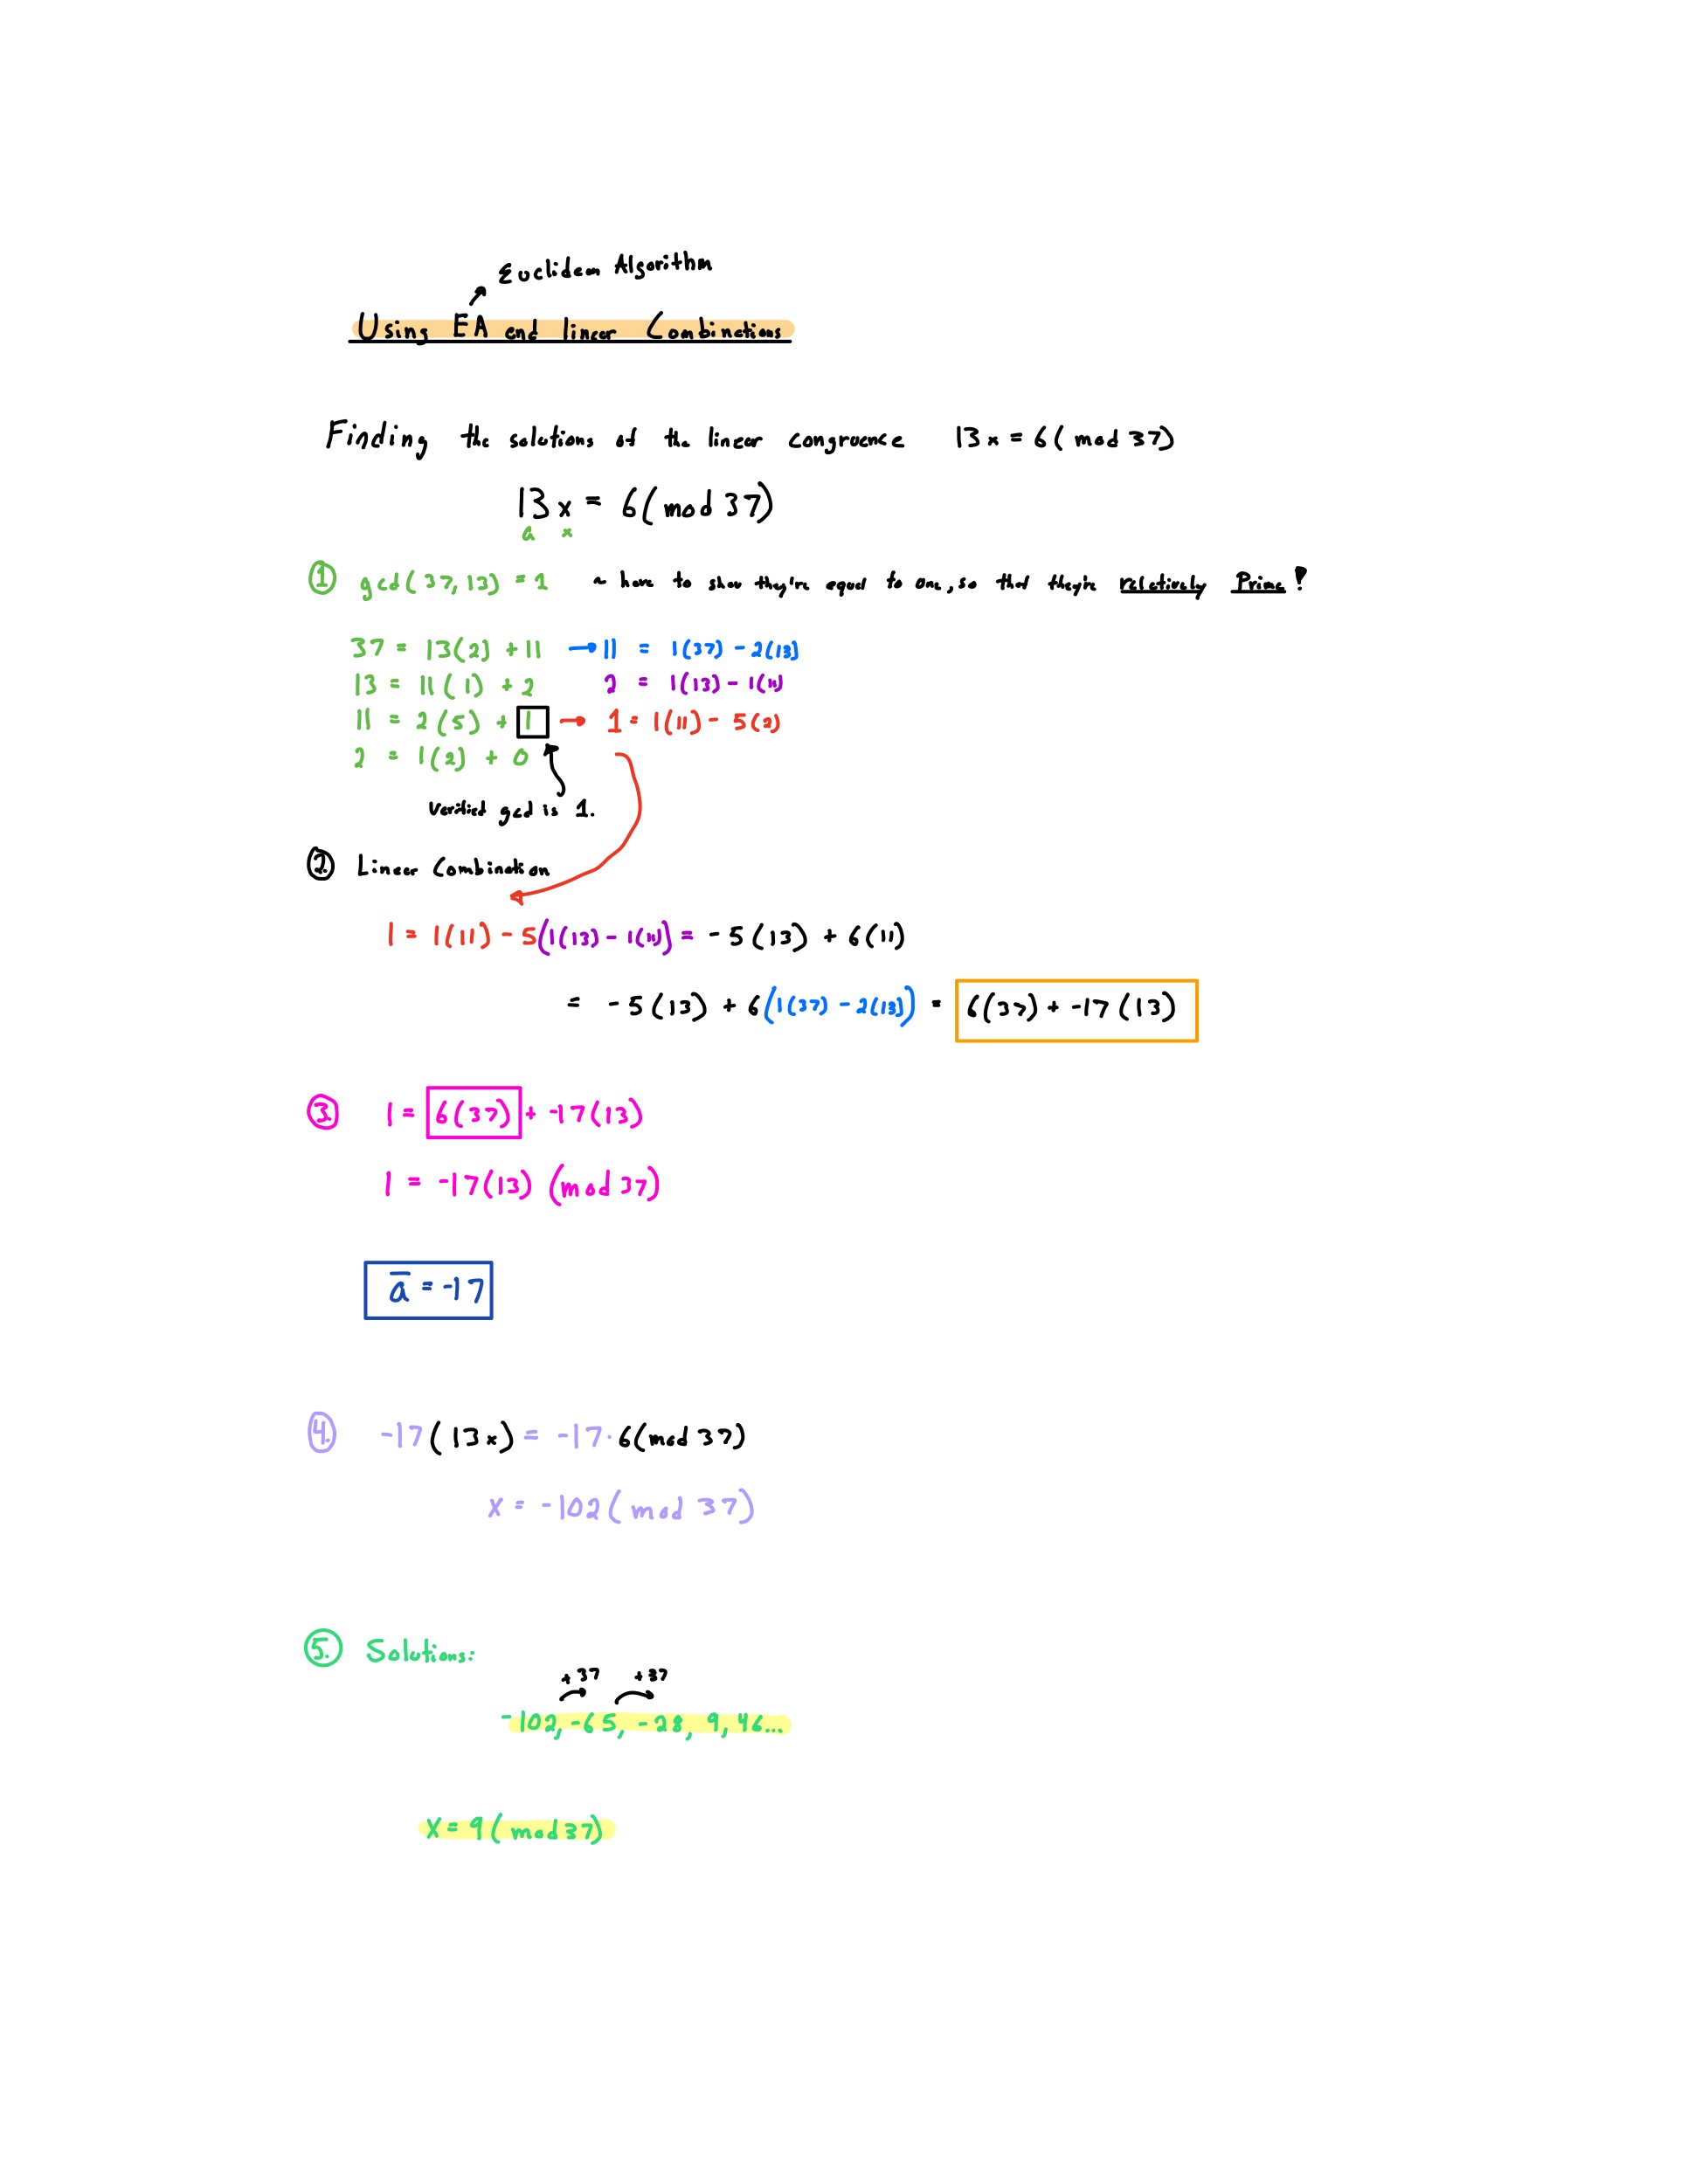 Euclidean Algorithm
Using EA and linear Combinations
Finding the solutions of the linear congruence 13x = 6( mod 37)
13x = 6(mod 37)
a x
① gcd(37,13) = 1 ~ have to show they're equal to one, so that they're relatively Prime!
37 = 13(2) + 11 → 11 = 1(37) - 2(13)
13 = 11(1) + 2 2 = 1(13) - 1(11)
11 = 2(5) + 1 → 1 = 1(11) - 5(2)
2 = 1(2) + 0
Verified gcd is 1.
②. Linear Combination
1 = 1(11) - 5(1(13) - 1(11)) = -5(13) + 6(11)
= -5(13) + 6(1(37) - 2(13)) = 6(37) + -17(13)
③. 1 = 6(37) + -17(13)
1 = -17(13) (mod 37)
a̅ = -17
④. -17(13x) = -17·6(mod 37)
x = -102(mod 37)
⑤. Solutions:
+37 +37
-102, -65, -28, 9, 46...
x = 9(mod 37)